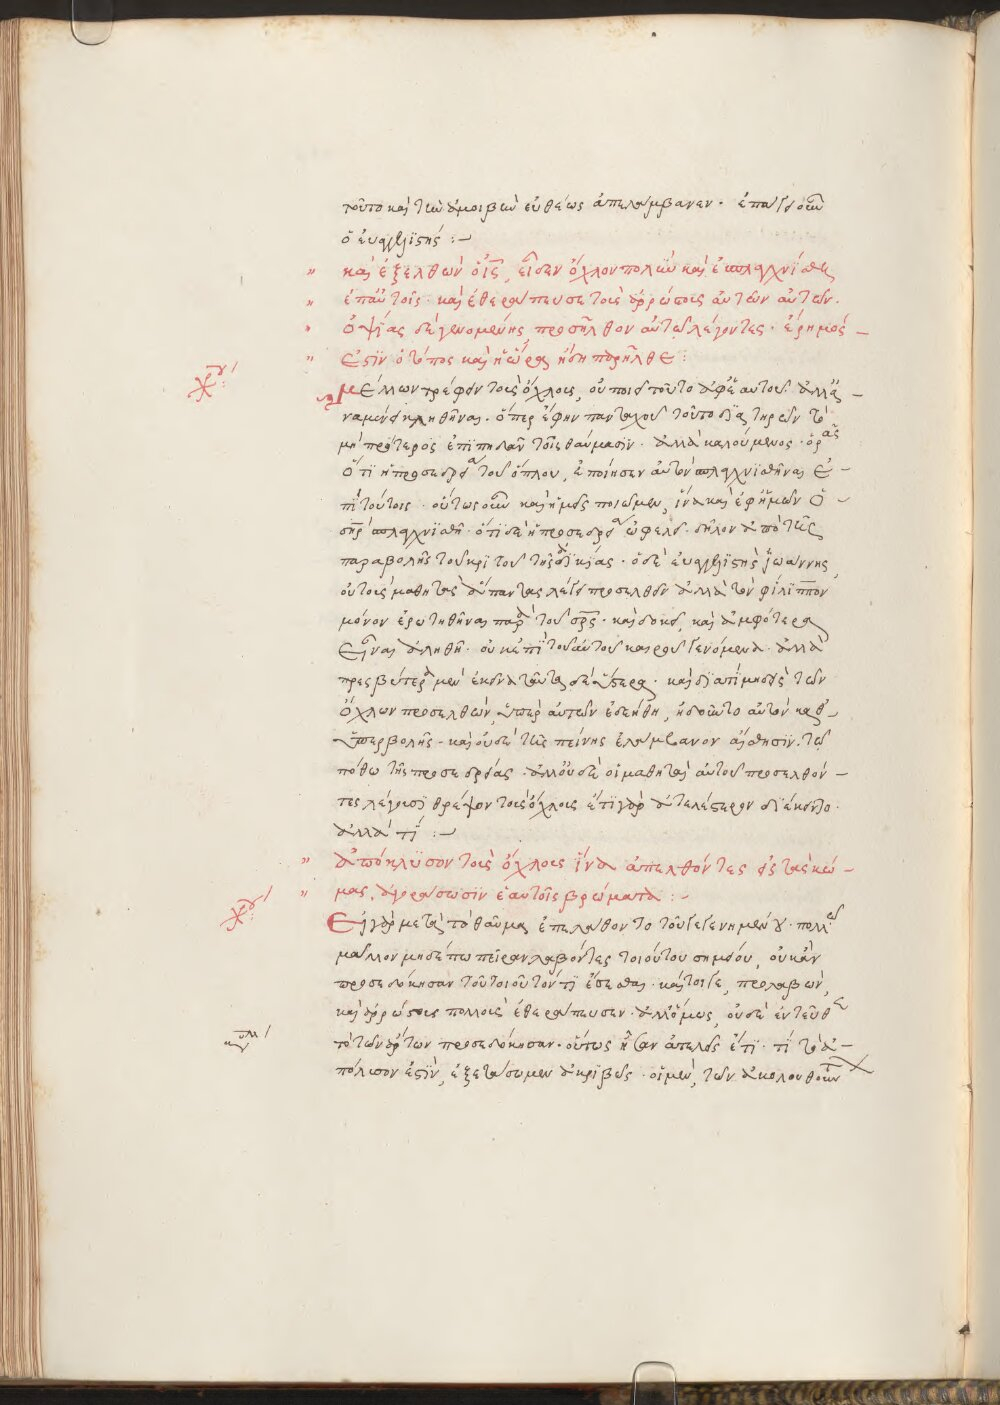 τοῦτο καὶ τὴν ἀμοιβὴν εὐθέως ἀπελάμβανεν· ἐπάγει οὖν
ὁ εὐαγγελϊστής :–
καὶ ἐξελθὼν ὁ ἰς, εἶδεν ὄχλον πολὺν καὶ ἐσπλαγχνίσθη
ἐπ' αὐτοῖς· καὶ ἐθεράπευσε τοὺς ἀρρώστους αὐτῶν αὐτῶν.
ὀψίας δὲ γενομένης προσῆλθον αὐτῶ λέγοντες· ἔρημός –
ἐστϊν ὁ τόπος καὶ ἡ ὥρα ἤδη παρῆλθε :
χρυ
μέλλων τρέφειν τοὺς ὄχλους, οὐ ποιεῖ τοῦτο ἀφ' ἑαυτοῦ ἀλλ' ἀ –
ναμένει κληθῆναι. ὅπερ ἔφην πανταχοῦ τοῦτο διατηρῶν τὸ
μὴ πρότερος ἐπϊπηδᾶν τοῖς θαύμασϊν· ἀλλὰ καλούμενος· ὁρᾶς
ὅτϊ ἡ προσεδρεία τοῦ ὄχλου, ἐποίησεν αὐτὸν σπλαγχνϊσθῆναι ἐ –
πὶ τούτοις· οὕτως οὖν καὶ ἡμεῖς ποιῶμεν, ἵνα καὶ ἐφ' ἡμῶν ὁ –
σηρ σπλαγχνϊσθῆ· ὅτϊ δὲ ἡ προσεδρεία ὠφελεῖ· δῆλον ἀπὸ τῆς
παραβολῆς τοῦ κρϊτοῦ τῆς ἀδϊκίας· ὁ δὲ εὐαγγελϊστὴς ἰωάννης,
οὐ τοὺς μαθητὰς ἅπαντας λέγει προσελθεῖν ἀλλὰ τὸν φίλϊππον
μόνον ἐρωτηθῆναι παρὰ τοῦ σρς· καὶ δοκεῖ, καὶ ἀμφότερα
εἶναι ἀληθῆ· οὐκ ἐπὶ τοῦ αὐτοῦ καιροῦ γενόμενα· ἀλλὰ
πρεσβύτερα μὲν ἐκεῖνα ταῦτα δὲ ὕστερα· καὶ δϊατί μηδεὶς τῶν
ὄχλων προσελθὼν, ὑπὲρ αὐτῶν ἐδεήθη, ἠδοῦντο αὐτὸν καθ' –
ὑπερβολὴν· καὶ οὐδὲ τῆς πείνης ἐλάμβανον αἴσθησϊν. τῶ
πόθω τῆς προσεδρείας· ἀλλ' οὐδὲ οἱ μαθηταὶ αὐτοῦ προσελθόν –
τες λέγουσϊ θρέψον τοὺς ὄχλους ἔτϊ γὰρ ἀτελέστερον δϊέκειντο·
ἀλλὰ τί :–
ἀπόλυσον τοὺς ὄχλους ἵνα ἀπελθόντες εἰς τὰς κώ –
μας, ἀγοράσωσϊν ἑαυτοῖς βρώματα :–
χρυ
εἰ γὰρ μετὰ τὸ θαῦμα ἐπελάθοντο τοῦ γεγενημένου· πολλῶ
μᾶλλον μηδέπω πεῖραν λαβόντες τοιούτου σημείου, οὐκ ἂν
προσεδόκησαν τοῦτοιοῦτόν τϊ ἔσεσθαι· καίτοιγε, προλαβὼν,
καὶ ἀρρώστους πολλοὺς ἐθεράπευσεν· ἀλλ' ὅμως, οὐδὲ ἐντεῦθεν
τὸ τῶν ἄρτων προσεδόκησαν· οὕτως ἦσαν ἀτελεῖς ἔτϊ· τί τὸ ἀ –
πόλυσόν ἐστϊν, ἐξετάσωμεν ἀκρϊβῶς· οἱ μὲν, τῶν ἀκολουθοῦν